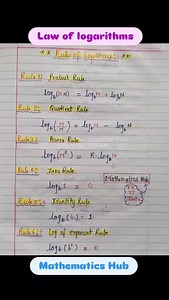 Law of logarithms
** Rules of Logarithms: **
Rule 1: Product Rule
log_b(MN) = log_b M + log_b N
Rule 2: Quotient Rule
log_b(M/N) = log_b M - log_b N
Rule 3: Power Rule
log_b(M^K) = K·log_b M
Rule 4: Zero Rule
log_b 1 = 0
Mathematics Hub
Rule 5: Identity Rule
log_b(b) = 1
Rule 6: log of exponent Rule
log_b(b^K) = K
Mathematics Hub